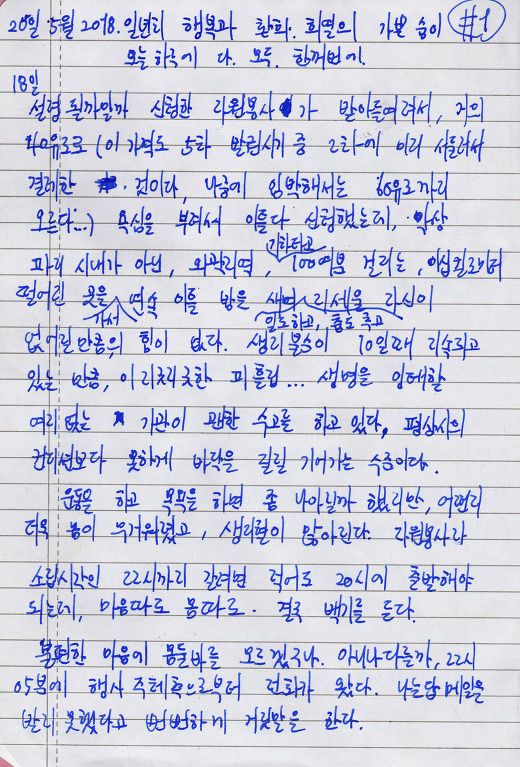 28일 5월 2018. 일년의 행복과 환희. 희열의 가쁜 숨이 #1
오늘 하루에 다. 모두. 한꺼번에.
18일
설령 될까말까 신청한 자원봉사 가 받아들여져서, 거의
40유로로 (이 가격도 5차 발권시기 중 2차에 미리 서둘러서
결제한 것이다, 나중에 임박해서는 60유로까지
오른다...) 욕심을 부려서 이틀 다 신청했는데, 막상
파리 시내가 아닌, 외곽지역, 기차타고 100여분 걸리는, 이십킬로미터
떨어진 곳을 가서 연속 이틀 밤을 새며 일도하고, 춤도 추고 지새울 자신이
없어질만큼의 힘이 없다. 생리불순이 10일째 지속되고
있는 만큼, 이 지치지 못한 피흘림... 생명을 잉태할
여지 없는 기관이 괜한 수고를 하고 있다, 평상시의
컨디션보다 못하게 바닥을 질질 기어가는 수준이다.
운동을 하고 목욕을 하면 좀 나아질까 했지만, 어쩐지
더욱 몸이 무거워졌고, 생리혈이 많아진다. 자원봉사자
소집시각인 22시까지 갈려면 적어도 20시에 출발해야
되는데, 마음따로 몸따로. 결국 백기를 든다.
불편한 마음에 몸둘바를 모르겠구나. 아니나다를까, 22시
05분에 행사 주체측으로부터 전화가 왔다. 나는 답메일을
받지 못했다고 뻔뻔하게 거짓말을 한다.